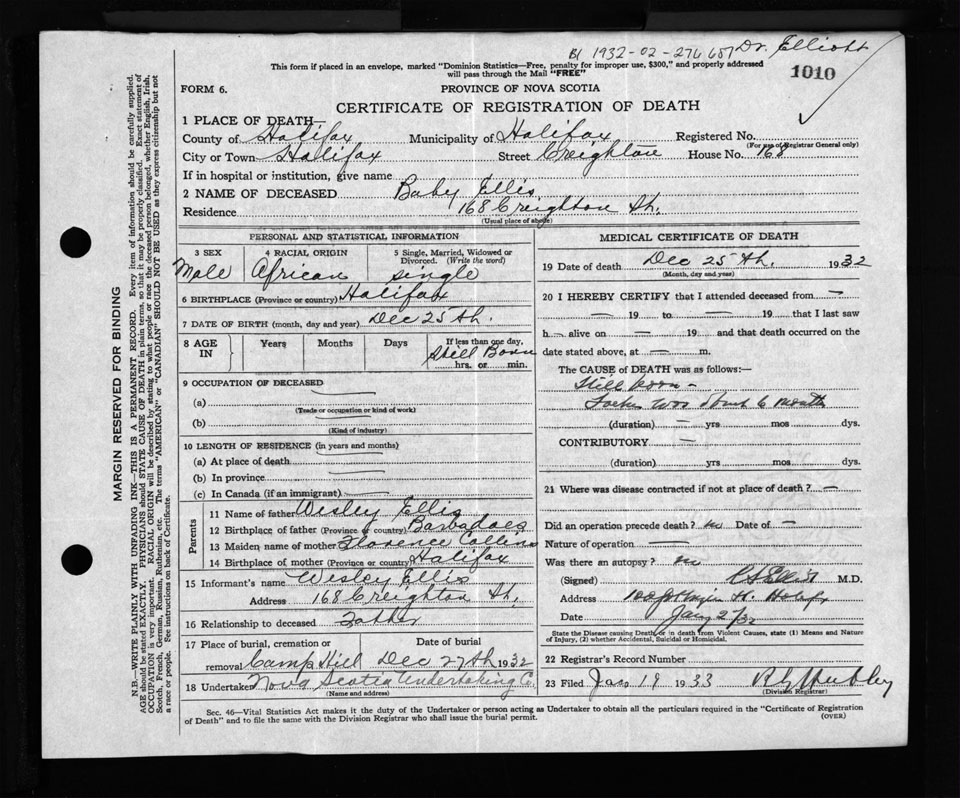 B1 1932-02-276657 Dr. Elliott
This form if placed in an envelope, marked "Dominion Statistics—Free, penalty for improper use, $300," and properly addressed
will pass through the Mail "FREE"
1010
FORM 6.
PROVINCE OF NOVA SCOTIA
CERTIFICATE OF REGISTRATION OF DEATH
1 PLACE OF DEATH—
County of Halifax Municipality of Halifax Registered No.
(For use of Registrar General only)
City or Town Halifax Street Creighton House No. 168
If in hospital or institution, give name
2 NAME OF DECEASED Baby Ellis
Residence 168 Creighton St.
(Usual place of abode)
MARGIN RESERVED FOR BINDING
N.B.—WRITE PLAINLY WITH UNFADING INK—THIS IS A PERMANENT RECORD. Every item of information should be carefully supplied.
AGE should be stated EXACTLY. PHYSICIANS should STATE CAUSE OF DEATH in plain terms, so that it may be properly classified. Exact statement of
OCCUPATION is very important. RACIAL ORIGIN will be described by stating to what people or race the deceased person belonged, whether English, Irish,
Scotch, French, German, Russian, Ruthenian, etc. The terms "AMERICAN" or "CANADIAN" SHOULD NOT BE USED as they express citizenship but not
a race or people. See instructions on back of Certificate.
PERSONAL AND STATISTICAL INFORMATION
3 SEX 4 RACIAL ORIGIN 5 Single, Married, Widowed or
Divorced. (Write the word)
Male African single
6 BIRTHPLACE (Province or country) Halifax
7 DATE OF BIRTH (month, day and year) Dec 25th.
8 AGE IN Years Months Days If less than one day,
Still Born
hrs. or min.
9 OCCUPATION OF DECEASED
(a)
(Trade or occupation or kind of work)
(b)
(Kind of industry)
10 LENGTH OF RESIDENCE (in years and months)
(a) At place of death
(b) In province
(c) In Canada (if an immigrant)
Parents
11 Name of father Wesley Ellis
12 Birthplace of father (Province or country) Barbadoes
13 Maiden name of mother Florence Collins
14 Birthplace of mother (Province or country) Halifax
15 Informant's name Wesley Ellis
Address 168 Creighton St.
16 Relationship to deceased Father
17 Place of burial, cremation or Date of burial
removal Camp Hill Dec 27th 1932
18 Undertaker Nova Scotia Undertaking Co.
(Name and address)
MEDICAL CERTIFICATE OF DEATH
19 Date of death Dec 25th. 1932
(Month, day and year)
20 I HEREBY CERTIFY that I attended deceased from —
— 19 to — 19 that I last saw
h— alive on — 19 and that death occurred on the
date stated above, at — m.
The CAUSE of DEATH was as follows:—
Still born —
was about 6 months
(duration) — yrs mos dys.
CONTRIBUTORY —
(duration) yrs mos dys.
21 Where was disease contracted if not at place of death? —
Did an operation precede death? no Date of —
Nature of operation —
Was there an autopsy? no
(Signed) Elliott M.D.
Address St. Halifax
Date Jany 2/32
State the Disease causing Death, or in death from Violent Causes, state (1) Means and Nature
of Injury, (2) whether Accidental, Suicidal or Homicidal.
22 Registrar's Record Number
23 Filed Jan 19 1933
(Division Registrar)
Sec. 46—Vital Statistics Act makes it the duty of the Undertaker or person acting as Undertaker to obtain all the particulars required in the "Certificate of Registration
of Death" and to file the same with the Division Registrar who shall issue the burial permit.
(OVER)